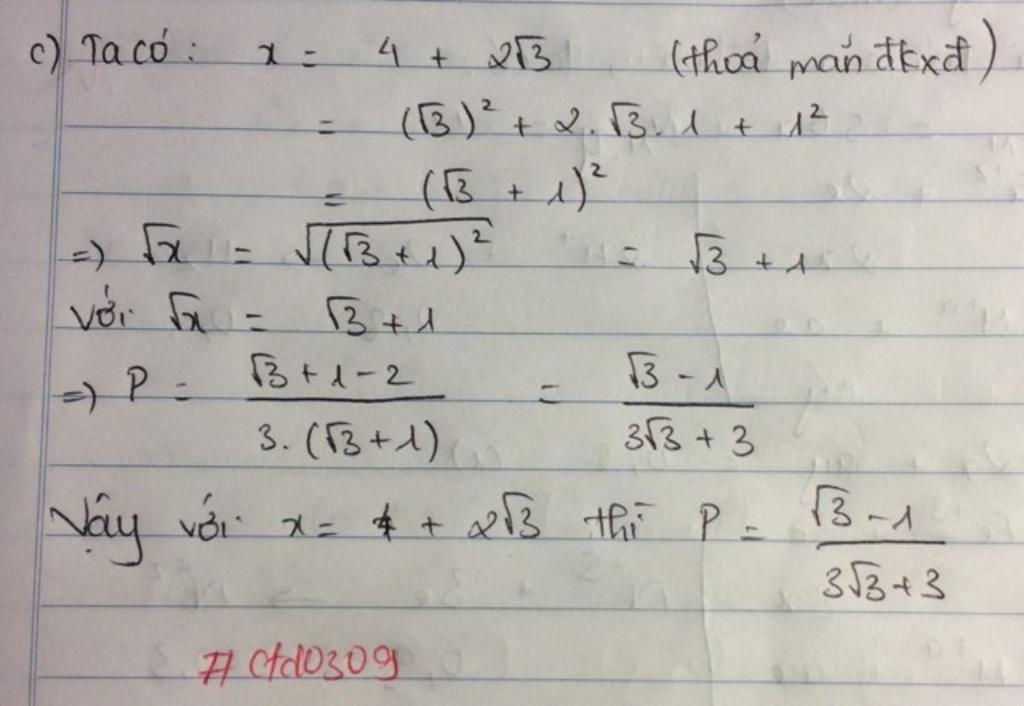 c) Ta có: x = 4 + 2√3 (thoả mãn đkxđ)
= (√3)² + 2.√3.1 + 1²
= (√3 + 1)²
=) √x = √(√3+1)² = √3 + 1
Với √x = √3+1
=) P = (√3+1-2)/(3.(√3+1)) = (√3-1)/(3√3+3)
Vậy với x = 4 + 2√3 thì P = (√3-1)/(3√3+3)
#ctd0309